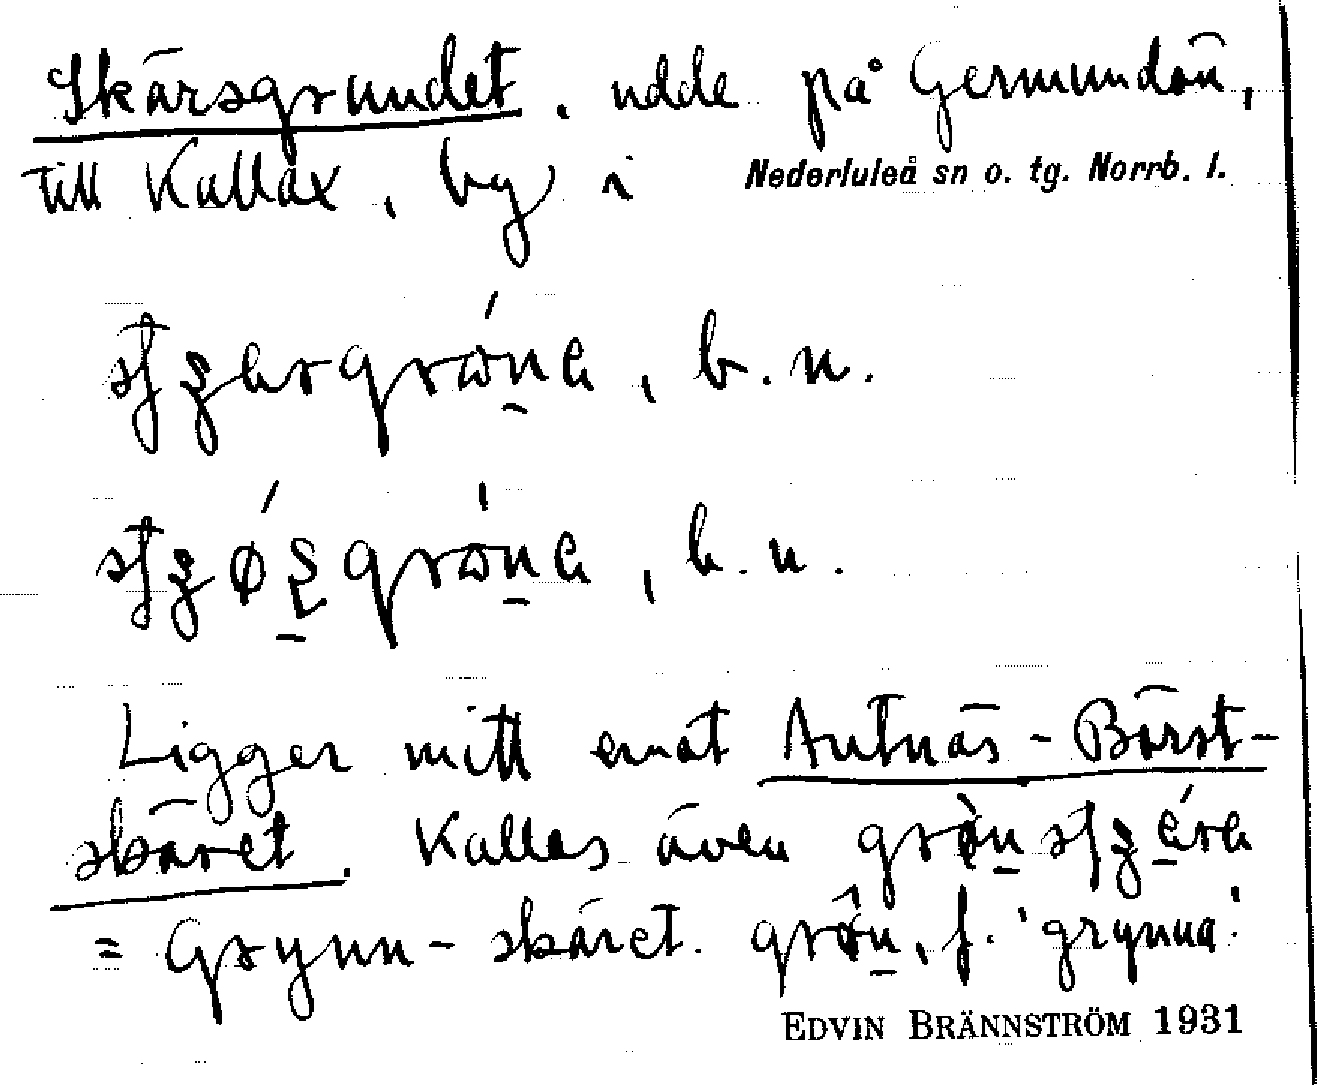 Skärsgrundet, udde på Germundön,
till Kallax, by i Nederluleå sn o. tg. Norrb. l.
, b. n.
, b. n.
Ligger mitt emot Antnäs-Börst-
skäret. Kallas även
= Grynn-skäret. , f. 'grynna'.
EDVIN BRÄNNSTRÖM 1931